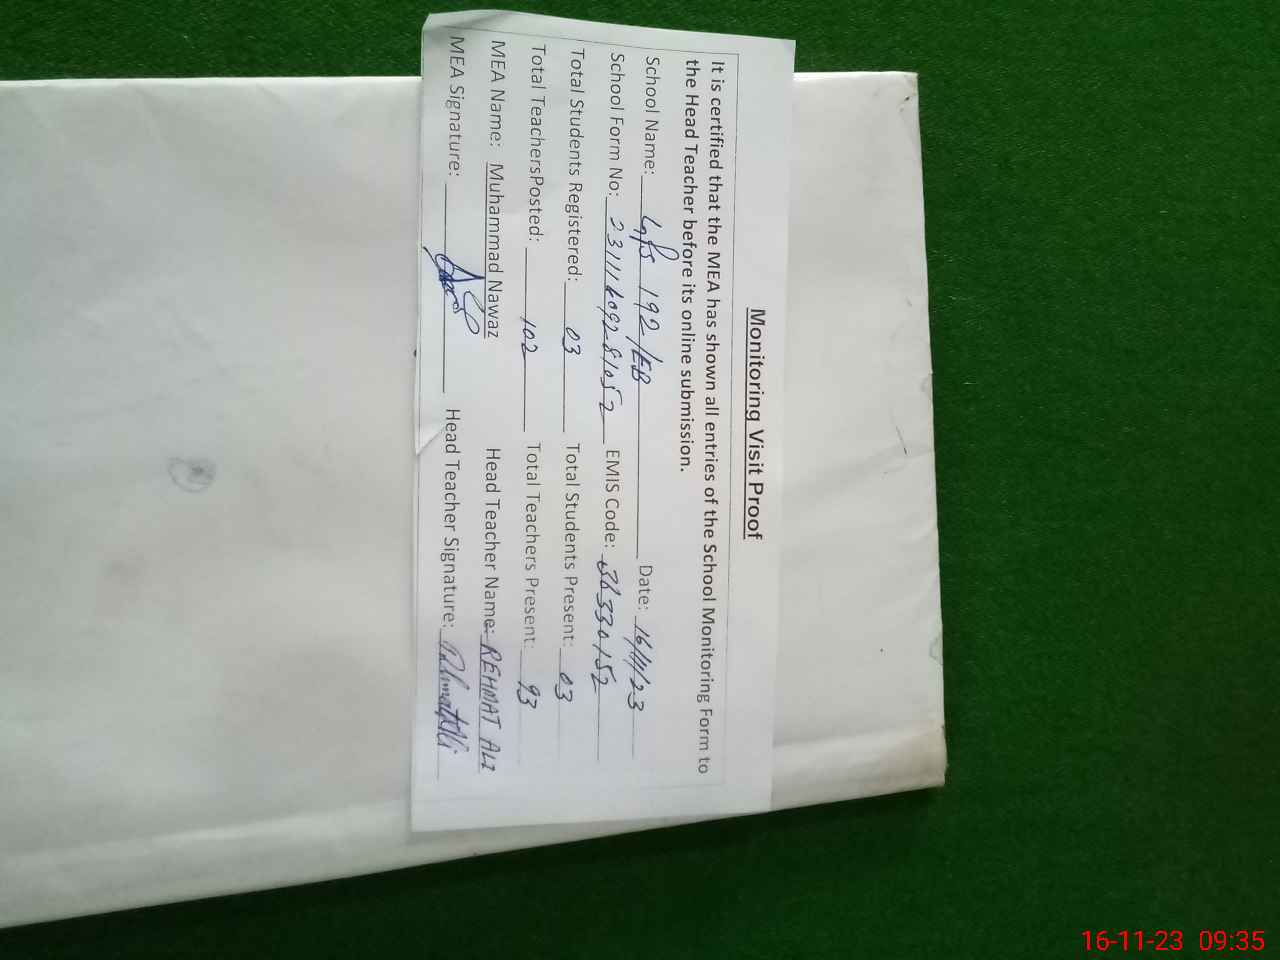 Monitoring Visit Proof
It is certified that the MEA has shown all entries of the School Monitoring Form to
the Head Teacher before its online submission.
School Name: 192/EB Date: 16/11/23
School Form No: EMIS Code: 36330152
Total Students Registered: 03 Total Students Present: 03
Total TeachersPosted: 102 Total Teachers Present: 93
MEA Name: Muhammad Nawaz Head Teacher Name: REHMAT ALI
MEA Signature: Head Teacher Signature: Rehmat Ali
16-11-23 09:35